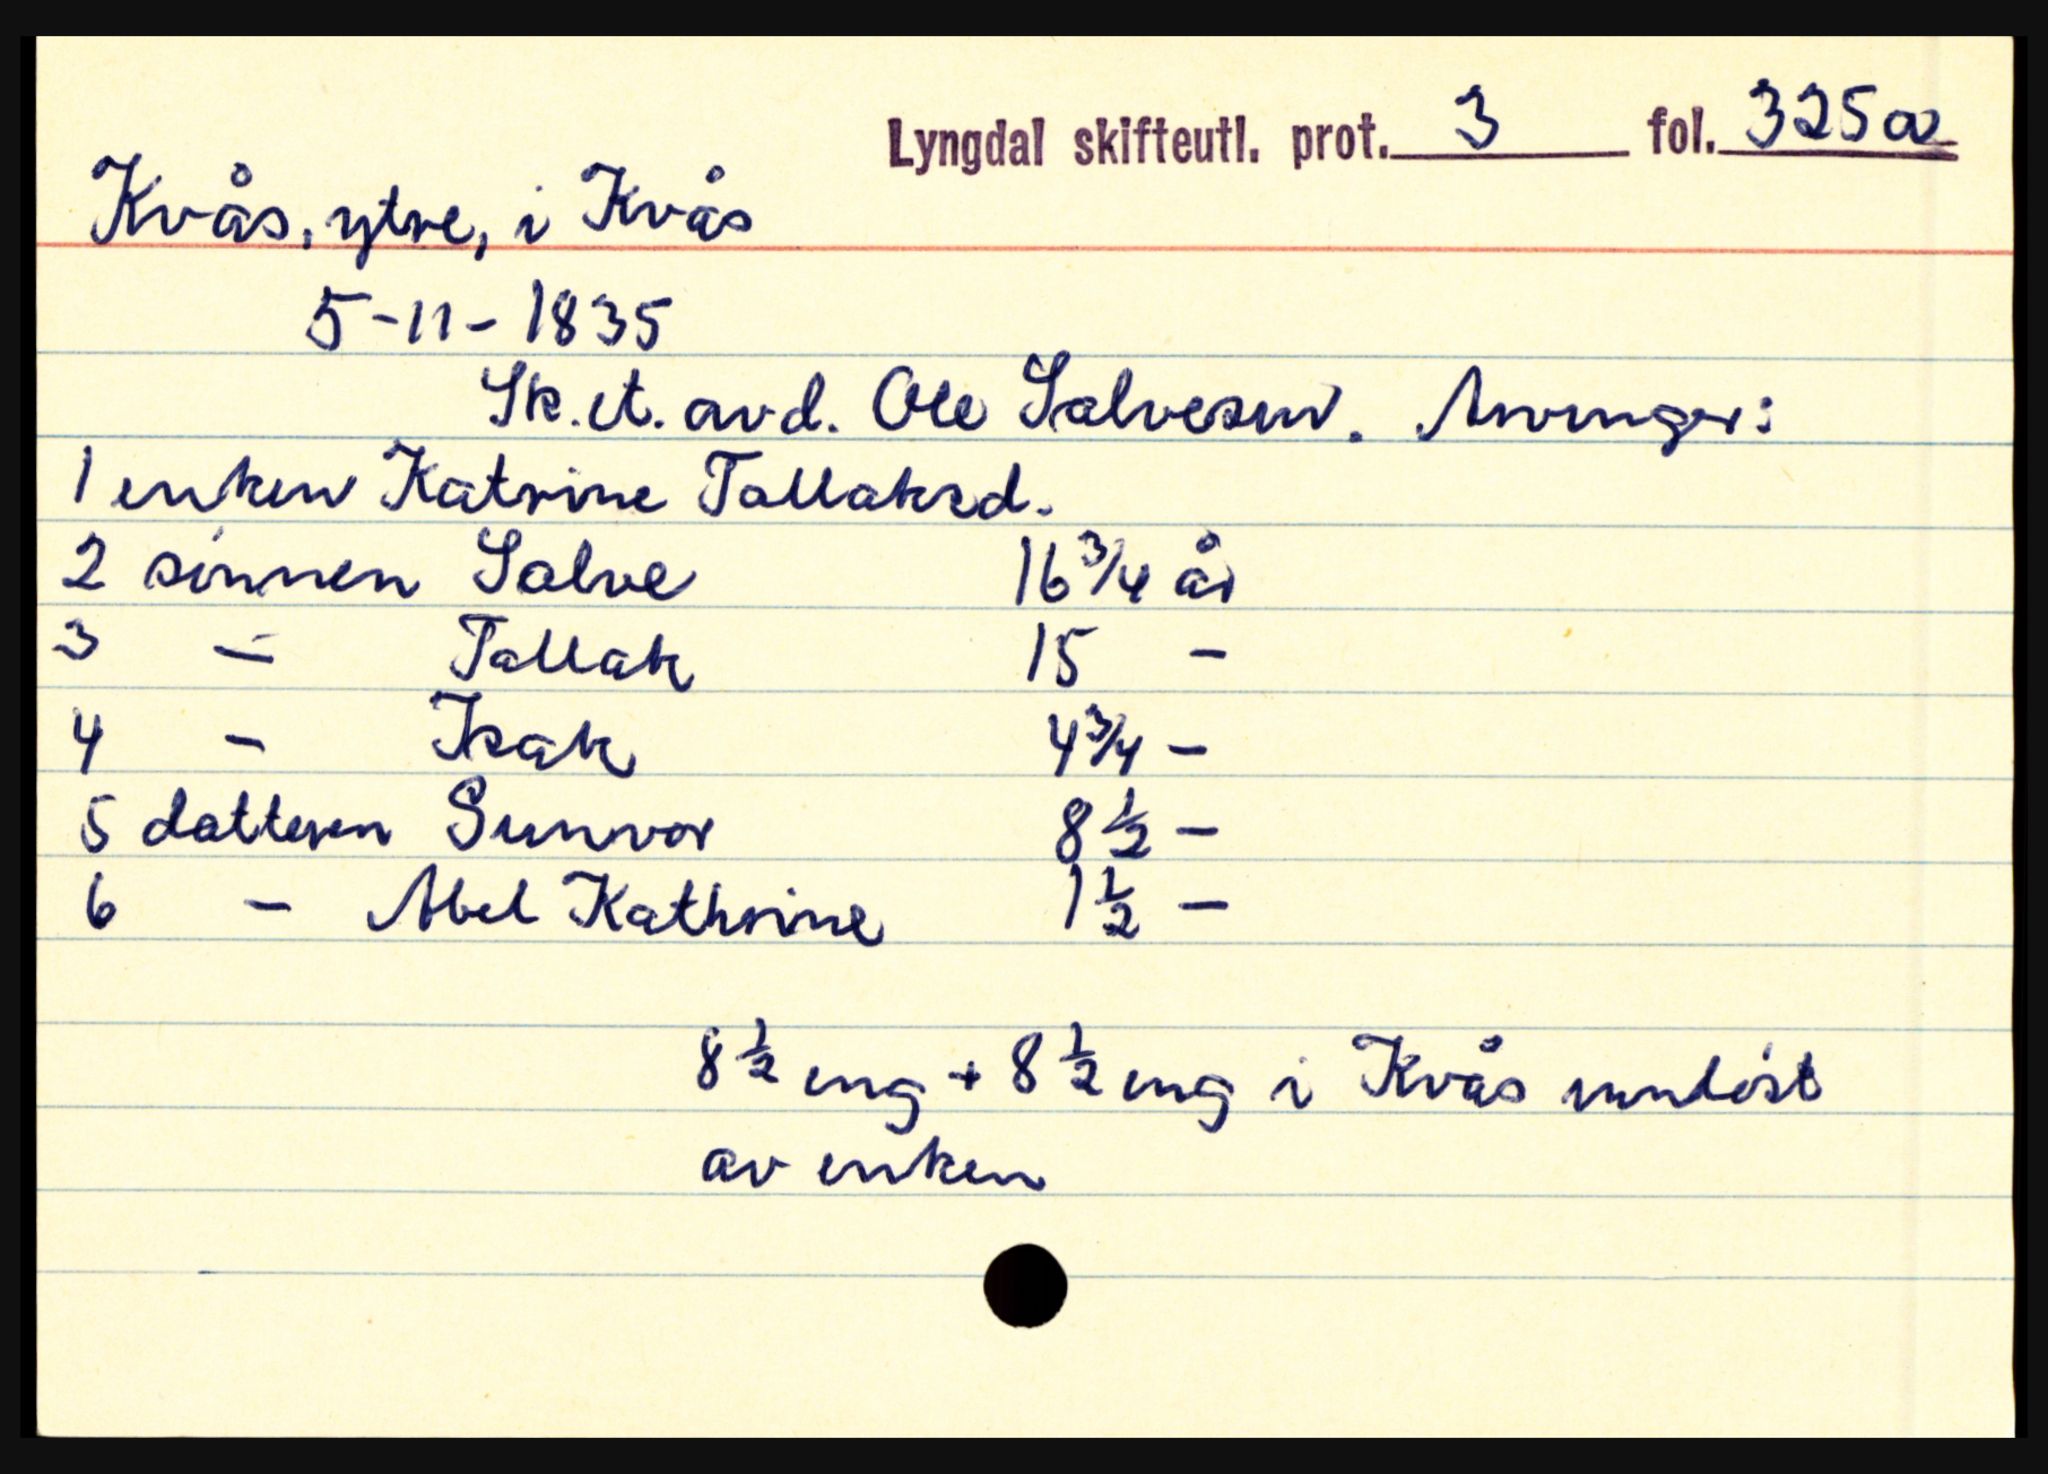 Lyngdal skifteutl. prot. 3 fol. 325a
Kvås, ytre, i Kvås
5-11-1835
Sk.et. avd. Ole Salvesen. Arvinger:
1 enken Katrine Tallaksd.
2 sønnen Salve 16 3/4 år
3 - Tallak 15 -
4 - Isak 4 3/4 -
5 datteren Sunvor 8 1/2 -
6 - Abel Kathrine 1 1/2 -
8 1/2 eng + 8 1/2 eng i Kvås innløst
av enken